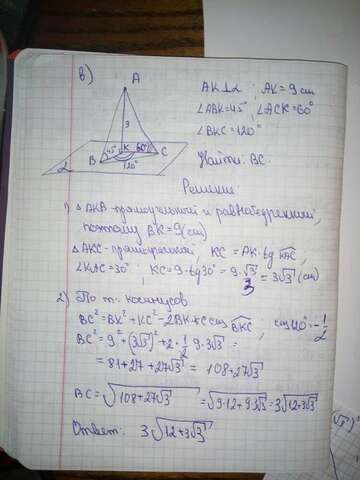 в)
A
АК⊥α ; АК = 9 см
∠ABK=45° ; ∠ACK=60°
∠BKC = 120°
9
45° K 60°
B C
120°
α
Найти: BC.
Решение:
1) △AKB - прямоугольный и равнобедренный,
поэтому BK = 9 (см)
△AKC - прямоугольный, KC = AK · tg KAC,
∠KAC = 30° ; KC = 9 · tg30° = 9 · √3/3 = 3√3 (см)
2) По т. косинусов
BC² = BK² + KC² - 2BK·KC cos BKC, cos120° = -1/2
BC² = 9² + (3√3)² + 2 · 1/2 · 9 · 3√3 =
= 81 + 27 + 27√3 = 108 + 27√3
BC = √108 + 27√3 = √9·12 + 9·3√3 = 3√12+3√3
Ответ: 3√12 + 3√3